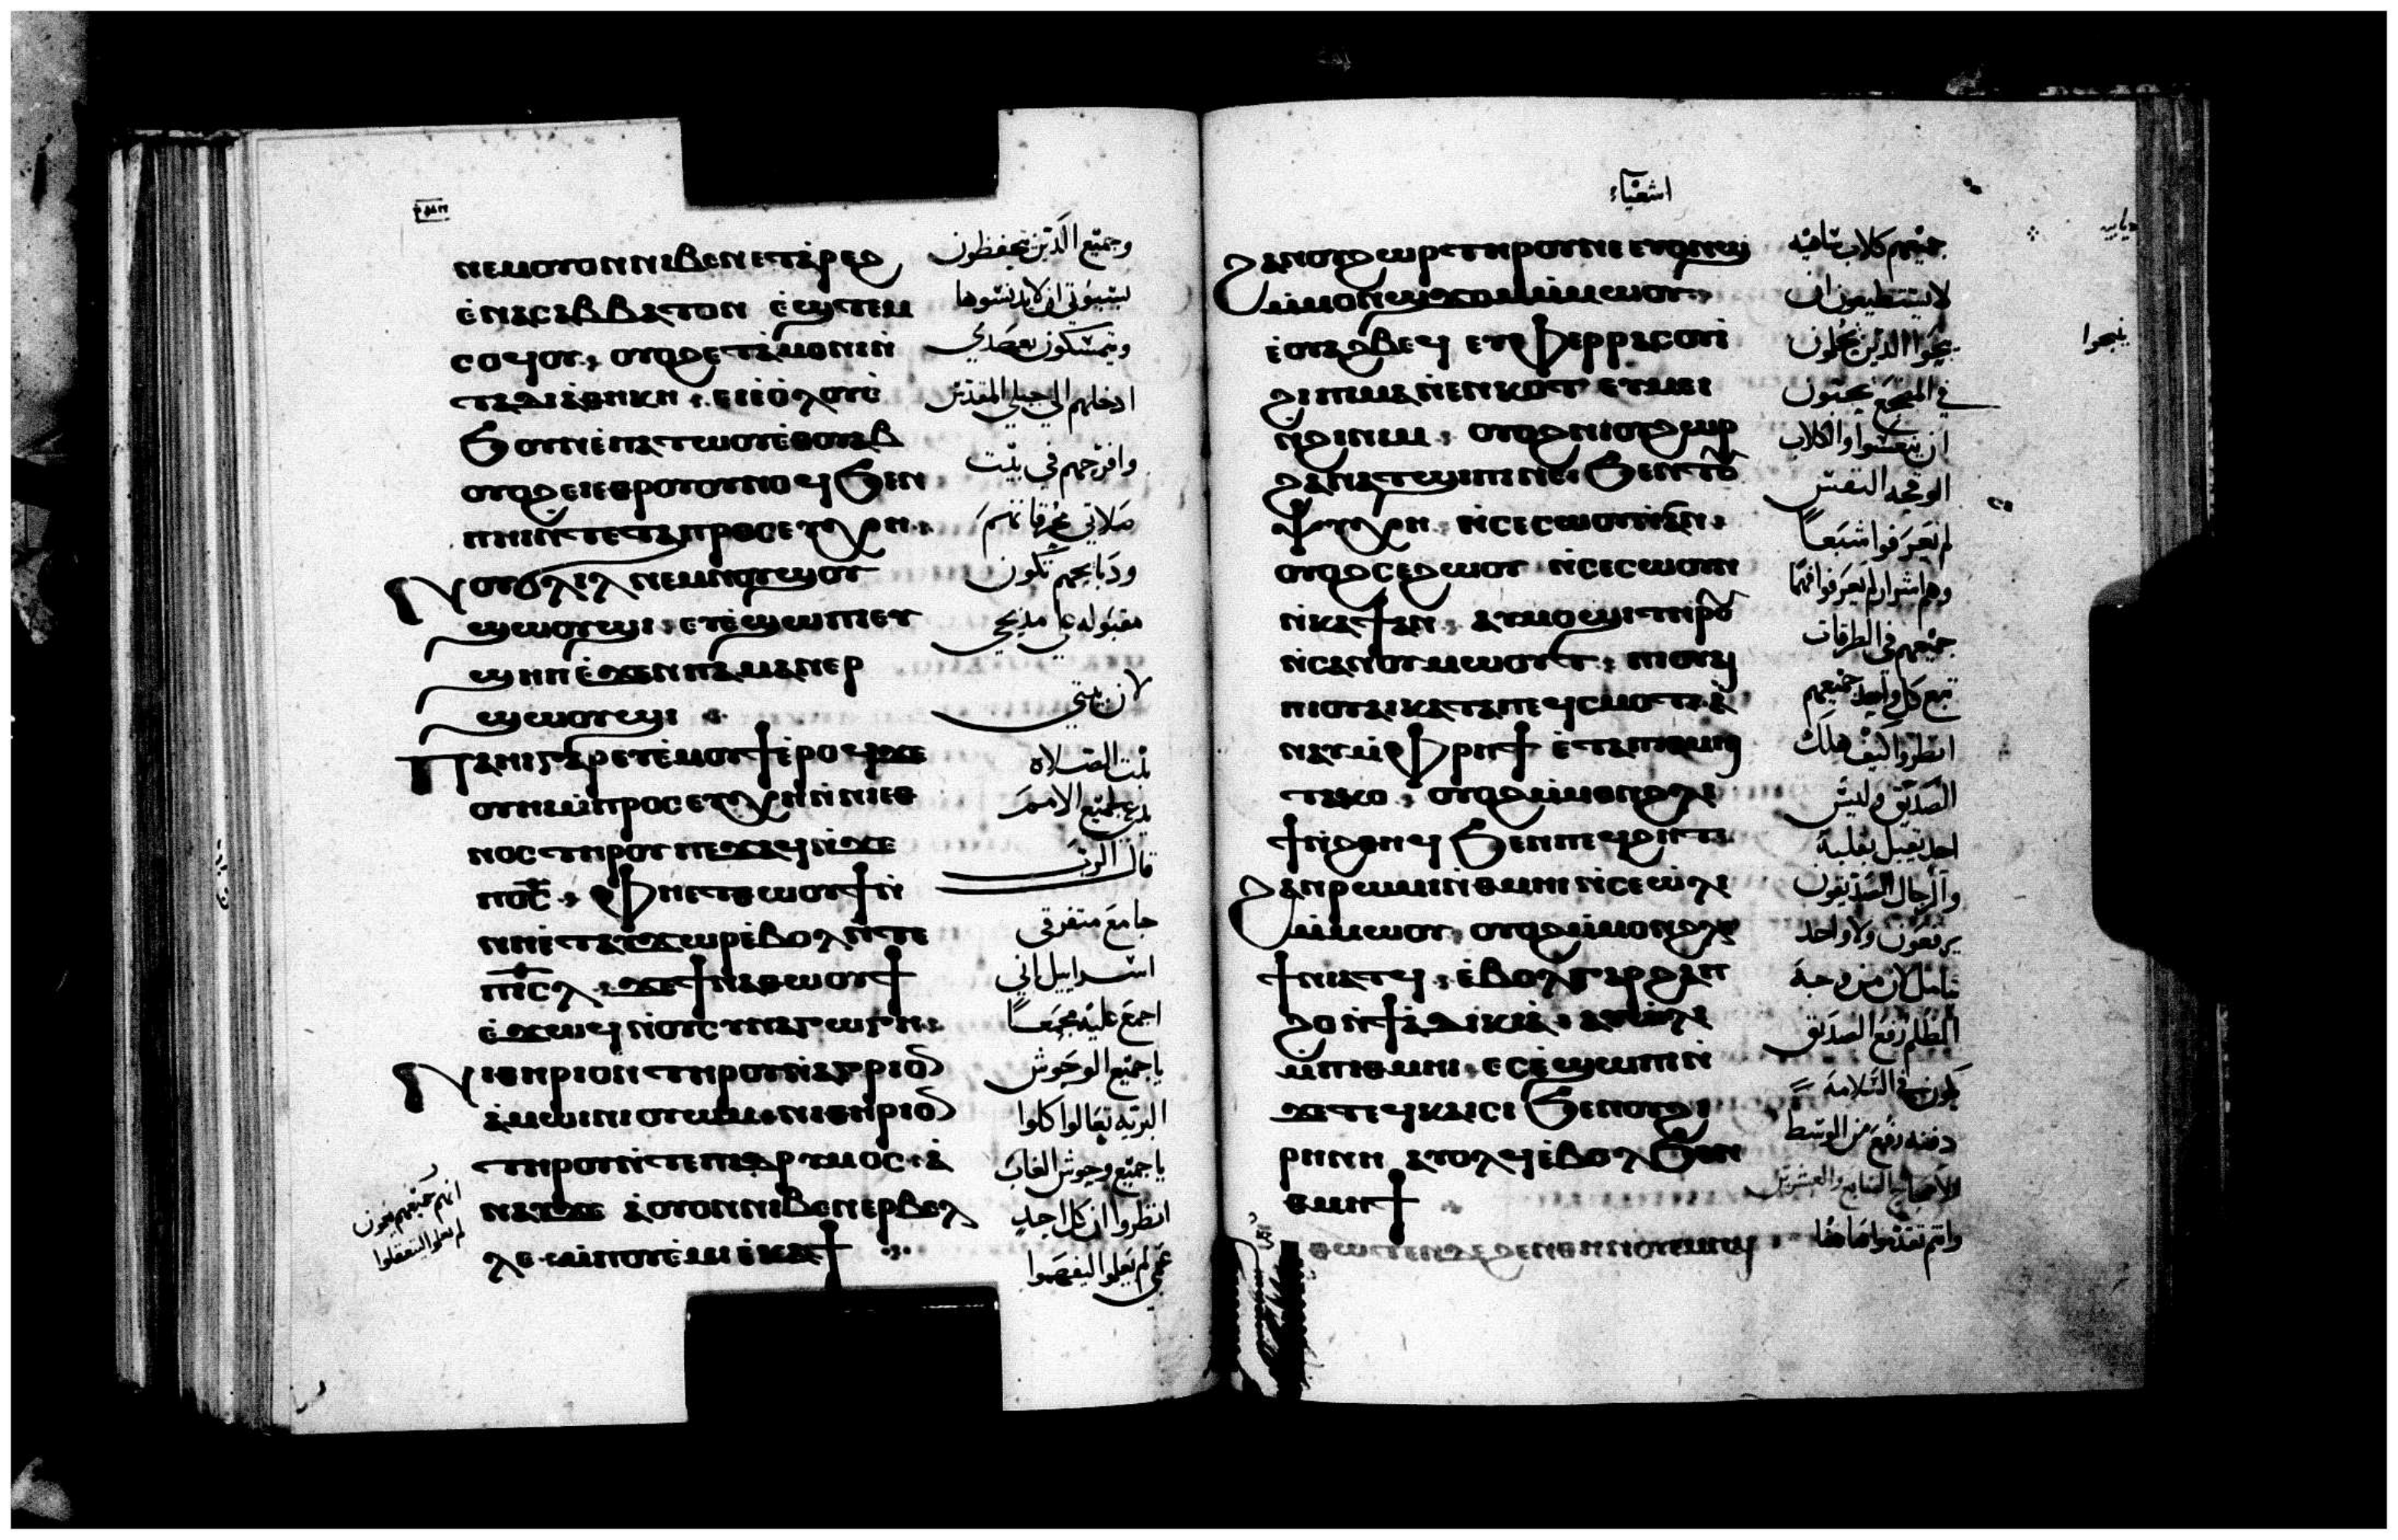 ⲛⲉⲙⲟⲩⲟⲛⲛⲓⲃⲉⲛⲉⲧⲁ̀ⲣⲉϩ
ⲉ̀ⲛⲁⲥⲁⲃⲃⲁⲧⲟⲛ ⲉ̀ϣⲧⲉⲙ
ⲥⲟϥⲟⲩ, ⲟⲩⲟϩⲉⲧⲁ̀ⲙⲟⲛⲓⲛ̀
ⲧⲁⲇⲓⲁ̀ⲑⲏⲕⲏ, ⲉⲓⲉ̀ⲟ̀ⲗⲟⲩⲉ̀
ϧⲟⲩⲛⲉ̀ⲡⲁⲧⲱⲟⲩⲉ̀ⲑⲟⲩⲁⲃ
ⲟⲩⲟϩⲉⲓⲉⲑⲣⲟⲩⲟⲩⲛⲟϥϧⲉⲛ
ⲡⲏⲓⲛ̀ⲧⲉⲧⲁⲡⲣⲟⲥⲉⲩⲭⲏ.
ⲛⲟⲩϭⲗⲓⲗⲛⲉⲙⲛⲟⲩϣⲟⲩ
ϣⲱⲟⲩϣⲓ, ⲉⲩⲉ̀ϣⲱⲡⲓⲉⲩ
ϣⲏⲡⲉ̀ϫⲉⲛⲡⲁⲙⲁⲛⲉⲣ
ϣⲱⲟⲩϣⲓ
ⲡⲁⲏⲓⲅⲁⲣⲉⲩⲉ̀ⲙⲟⲩϯⲉ̀ⲣⲟϥϫⲉ
ⲟⲩⲏⲓⲙ̀ⲡⲣⲟⲥⲉⲩⲭⲏⲛ̀ⲛⲓⲉⲑ
ⲛⲟⲥⲧⲏⲣⲟⲩ ⲡⲉϫⲁϥⲛ̀ϫⲉ
ⲡⲟ̅ⲥ̅, ⲫⲏⲉⲧⲑⲱⲟⲩϯⲛ̀
ⲛⲏⲉ̀ⲧⲁⲩϫⲱⲣⲉ̀ⲃⲟⲗⲛ̀ⲧⲉ
ⲡⲓ̅ⲥ̅ⲗ̅, ϫⲉϯⲛⲁⲑⲱⲟⲩϯ
ⲉ̀ϫⲱϥⲛ̀ⲟⲩⲥⲩⲛⲁⲅⲱⲅⲏ.
ⲛⲓⲑⲏⲣⲓⲟⲛⲧⲏⲣⲟⲩⲛ̀ⲁⲅⲣⲓⲟ̅
ⲁ̀ⲙⲱⲓⲛⲓⲟⲩⲱⲙ, ⲛⲓⲑⲏⲣⲓⲟ̅
ⲧⲏⲣⲟⲩⲛ̀ⲧⲉⲡⲓⲇⲣⲩⲙⲟⲥ. ⲁ̀
ⲛⲁⲩϫⲉ ⲁ̀ⲟⲩⲟⲛⲛⲓⲃⲉⲛⲉⲣⲃⲉⲗ
ⲗⲉ. ⲙ̀ⲡⲟⲩⲉ̀ⲙⲓⲉ̀ⲕⲁϯ
وجميع الذين يحفظون
سبوتي ان لا يدنسوها
ويتمسكون بعهدي
ادخلهم الى جبلي المقدس
وافرحهم في بيت
صلاتي محرقاتهم
ودبايحهم تكون
مقبوله على مدبحي
لان بيتي
بيت الصلاه
يدعى لجميع الامم
قال الرب
جامع متفرقي
اسراييل اني
اجمع عليه مجمعا
يا جميع الوحوش
البريه تعالوا كلوا
يا جميع وحوش الغاب
انظروا ان كل احد
عمي لم يعلموا ليفهموا
اشعياء
ϩⲁⲛⲟⲩϩⲱⲣⲧⲏⲣⲟⲩⲛⲉ ⲉⲩϩⲏϣ
ⲙ̀ⲙⲟⲛϣϫⲟⲙⲙ̀ⲙⲱⲟⲩ,
ⲉ̀ⲟⲩⲁϩⲃⲉϥ ⲉⲩⲫⲉⲣⲣⲁⲥⲟⲩⲓ̀
ϩⲓⲡⲙⲁⲛ̀ⲉⲛⲕⲟⲧ ⲉⲩⲙⲉⲓ
ⲛ̀ϩⲓⲛⲓⲙ, ⲟⲩⲟϩⲛⲓⲟⲩϩⲱⲣ
ϩⲁⲛⲁⲧϣⲓⲡⲓⲛⲉ, ϧⲉⲛⲧⲟⲩ
ⲯⲩⲭⲏ ⲛ̀ⲥⲉⲥⲱⲟⲩⲛⲁⲛ,
ⲟⲩⲟϩⲥⲉϩⲱⲟⲩ ⲛ̀ⲥⲉⲥⲱⲟⲩⲛ
ⲛ̀ⲕⲁϯⲁⲛ. ⲁⲩⲙⲟϣⲓⲧⲏⲣⲟⲩ
ⲛ̀ⲥⲁⲛⲟⲩⲙⲱⲟⲩⲧ, ⲡⲓⲟⲩⲁⲓ
ⲡⲓⲟⲩⲁⲓⲕⲁⲧⲁⲡⲉϥⲥⲙⲟⲧ. ⲁ̀
ⲛⲁⲩⲙ̀ⲫⲣⲏϯ ⲉ̀ⲧⲁⲡⲓⲑⲙⲏⲓ
ⲧⲁⲕⲟ, ⲟⲩⲟϩⲙ̀ⲙⲟⲛϩⲗⲓ
ϯⲛ̀ϩⲑⲏϥ ϧⲉⲛⲡⲉϥϩⲏⲧ.
ϩⲁⲛⲣⲱⲙⲓⲛ̀ⲑⲙⲏⲓ ⲛ̀ⲥⲉⲱ̀ⲗⲓ
ⲙ̀ⲙⲱⲟⲩ, ⲟⲩⲟϩⲙ̀ⲙⲟⲛϩⲗⲓ
ϯⲛⲓⲁⲧϥ, ⲉ̀ⲃⲟⲗⲅⲁⲣϩⲁⲡ
ϩⲟⲛ̀ϯⲁ̀ⲇⲓⲕⲓⲁ̀. ⲁⲩⲱ̀ⲗⲓ
ⲙ̀ⲡⲓⲑⲙⲏⲓ. ⲉⲥⲉ̀ϣⲱⲡⲓⲛ̀
ϫⲉⲧⲉϥⲕⲁⲓⲥⲓ ϧⲉⲛⲟⲩϩⲓ
ⲣⲏⲛⲏ ⲁⲩⲟⲗϥⲉ̀ⲃⲟⲗϧⲉⲛ
ⲑⲙⲏϯ
جميعهم كلاب نابحه
لا يستطيعون ان
ينبحوا الذين يحلمون
في المضجع يحبون
ان ينعسوا والكلاب
الوقحه النفس
لم يعرفوا شبعا
وهم اشرار لم يعرفوا فهما
جميعهم في الطرقات
تبع كل واحد جميعهم
انظروا كيف هلك
الصديق وليس
احد يقبل بقلبه
والرجال الصديقون
يرفعون ولا واحد
يتامل لان من وجه
الظلم رفع الصديق
يكون في السلامه
دفنه رفع من الوسط
الاصحاح السابع والعشرين
ينبحوا